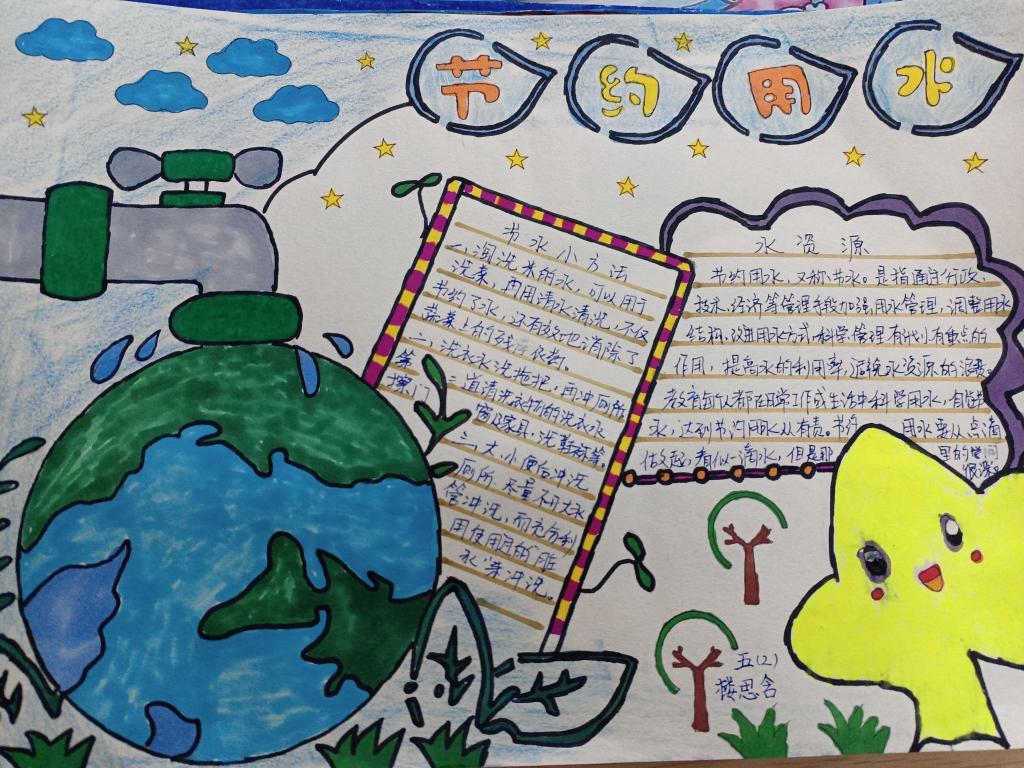 节约用水
节水小方法
一、淘洗米的水,可以用于
洗菜,再用清水清洗,不仅
节约了水,还有效地消除了
蔬菜上的残 农药。
二、洗衣水洗拖把,再冲厕所
第二道清洗衣物的洗衣水
擦门窗及家具、洗鞋袜等。
三、大、小便后冲洗
厕所,尽量不用大水
管冲洗,而充分利
用使用过的“脏
水”来冲洗。
水资源
节约用水,又称节水。是指通过行政、
技术、经济等管理手段加强用水管理,调整用水
结构,改进用水方式,科学管理有代小有重点的
作用,提高水的利用率,避免水资源的浪费。
教育 都在日常工作或生活中科学用水,自觉节
水,达到节约用水人有责。节约 用水要从点滴
做起,看似一滴水,但是那 里的时间
很深。
五(2)
楼思含